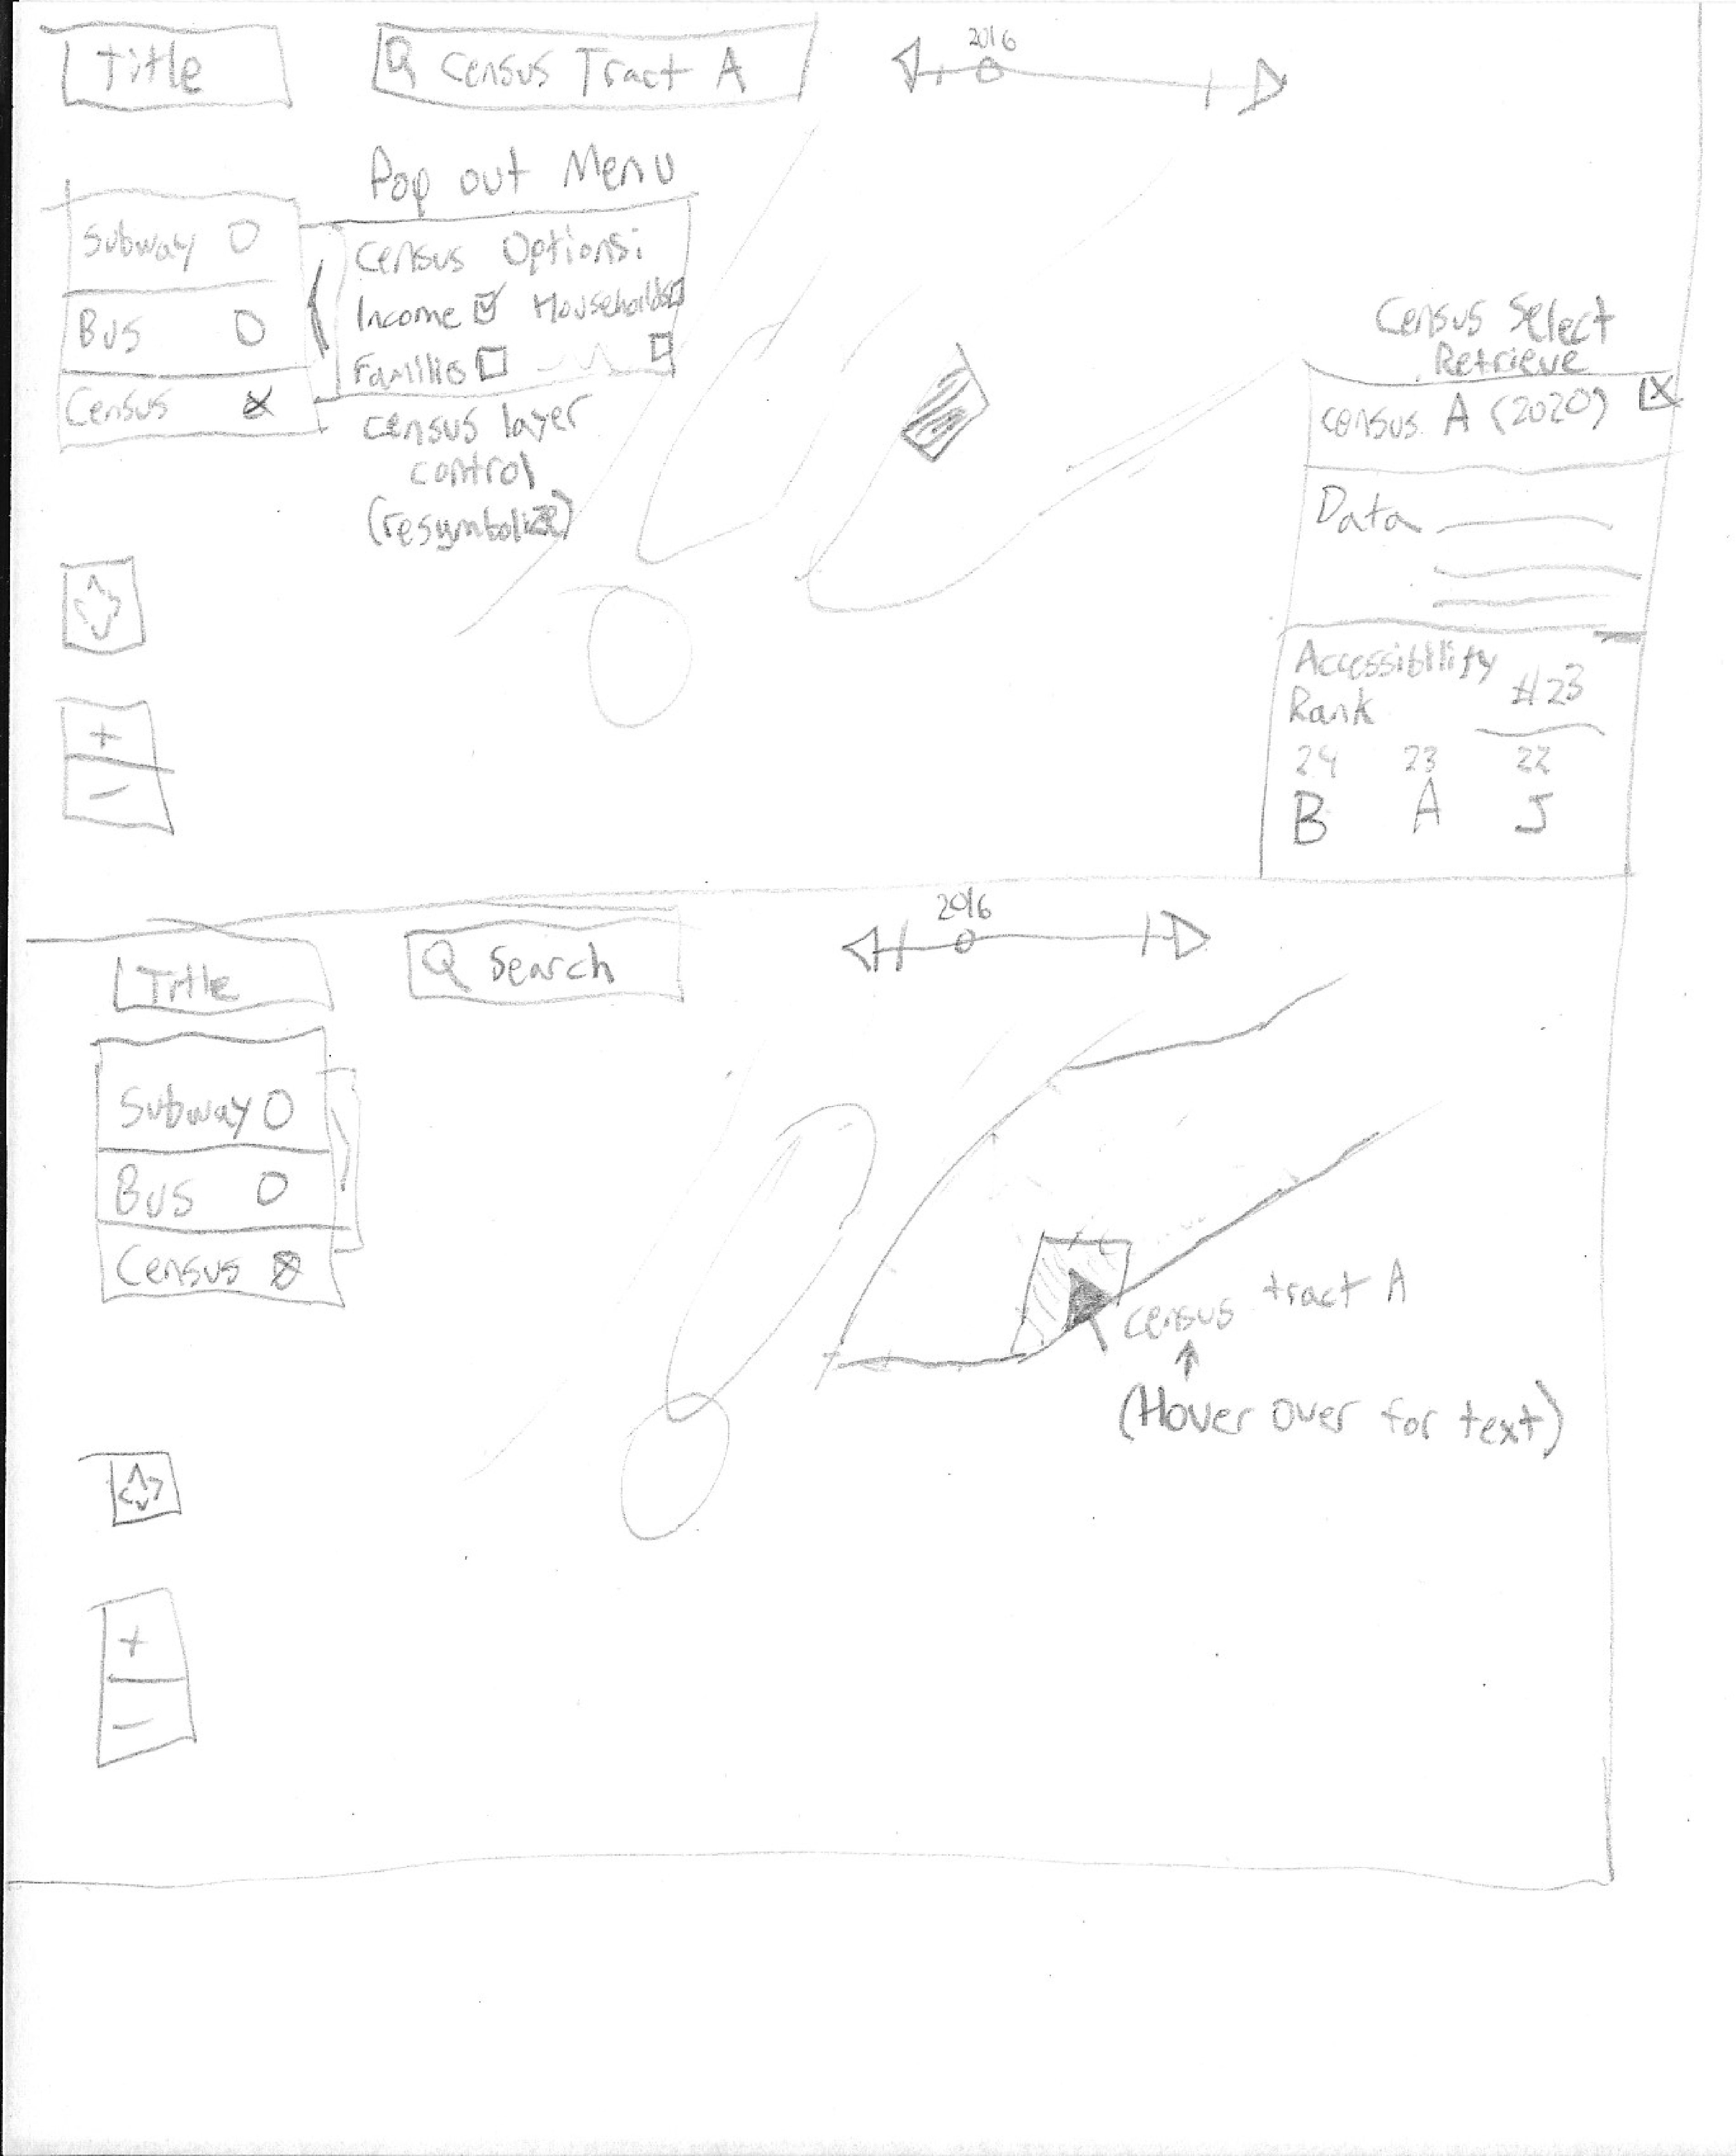 Title
Census Tract A
2016
Pop out Menu
Subway
Bus
Census
Census Options:
Income Households
Families
census layer
control
(resymbolize)
+
−
Census Select
Retrieve
census A (2020) X
Data
Accessibility
Rank #23
24 23 22
B A J
Title
Search
2016
Subway
Bus
Census
census tract A
(Hover over for text)
+
−